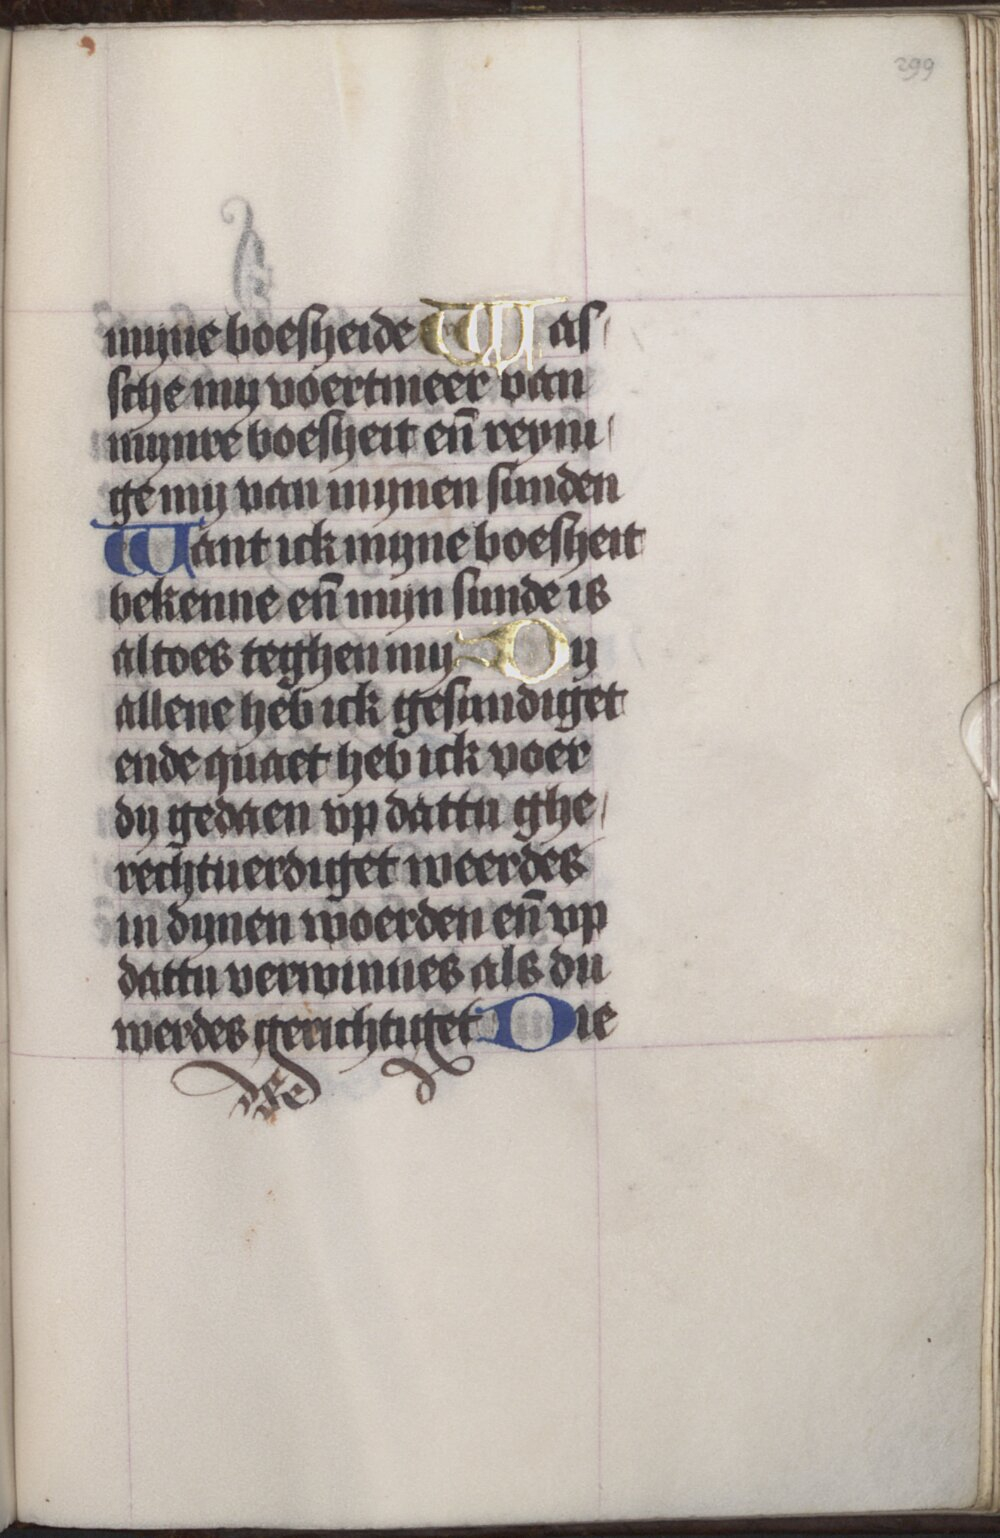 299
myne boesheide Was/
sche my voertmeer van
mynre boesheit en̄ reyni/
ge my van mynen sunden
Want ick myne boesheit
bekenne en̄ mijn sunde is
altoes teghen my Dy
allene heb ick gesundiget
ende quaet heb ick voer
dy gedaen vp dattu ghe/
rechtuerdiget weerdes
in dynen woerden en̄ vp
dattu verwinnes als du
werdes gerichtiget Die